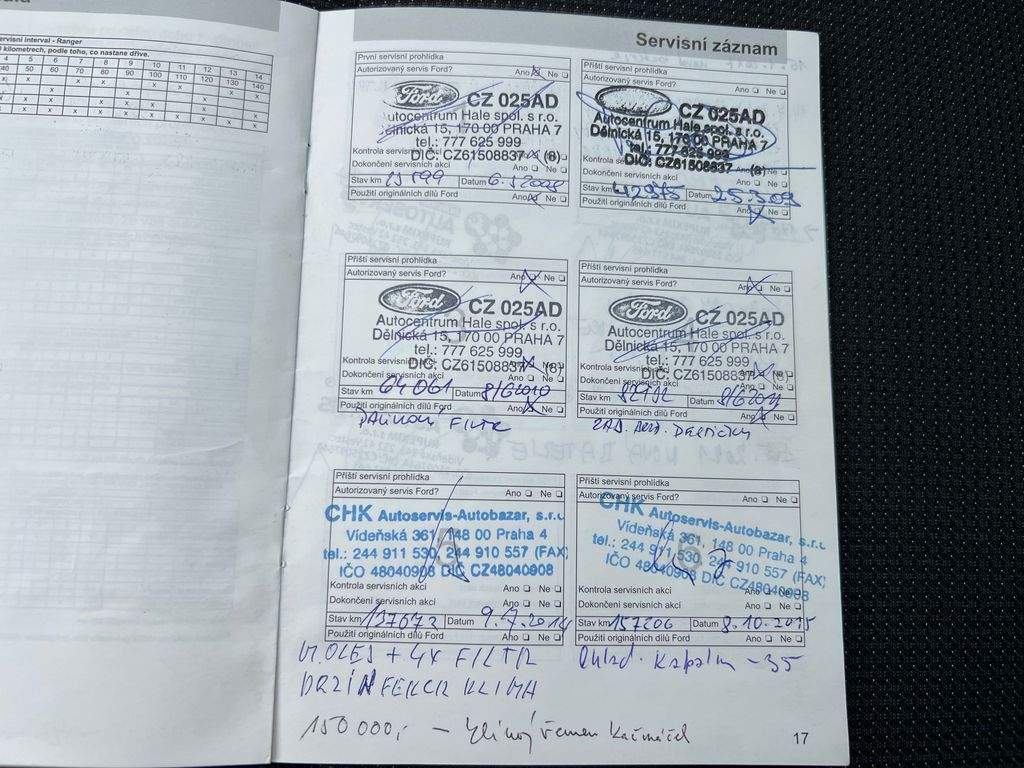 ervisní interval - Ranger
kilometrech, podle toho, co nastane dříve.
4 5 6 7 8 9 10 11 12 13 14
40 50 60 70 80 90 100 110 120 130 140
Servisní záznam
První servisní prohlídka
Autorizovaný servis Ford? Ano Ne
Ford CZ 025AD
Autocentrum Hale spol. s r.o.
Dělnická 15, 170 00 PRAHA 7
tel.: 777 625 999
DIČ: CZ61508837 (8)
Kontrola servisních akcí
Dokončení servisních akcí Ano Ne
Stav km Datum
Použití originálních dílů Ford Ano Ne
Příští servisní prohlídka
Autorizovaný servis Ford? Ano Ne
CZ 025AD
Autocentrum Hale spol. s r.o.
Dělnická 15, 170 00 PRAHA 7
tel.: 777 625 999
DIČ: CZ61508837 (8)
Kontrola
Dokončení servisních akcí Ano Ne
Stav km 42975 Datum 25.3.09
Použití originálních dílů Ford Ano Ne
Příští servisní prohlídka
Autorizovaný servis Ford? Ano Ne
Ford CZ 025AD
Autocentrum Hale spol. s r.o.
Dělnická 15, 170 00 PRAHA 7
tel.: 777 625 999
DIČ: CZ61508837 (8)
Kontrola servisních akcí
Dokončení servisních akcí Ano Ne
Stav km 64061 Datum 8/6 2010
Použití originálních dílů Ford Ano Ne
FILTR
Příští servisní prohlídka
Autorizovaný servis Ford? Ano Ne
Ford CZ 025AD
Autocentrum Hale spol. s r.o.
Dělnická 15, 170 00 PRAHA 7
tel.: 777 625 999
DIČ: CZ61508837 (8)
Kontrola servisních akcí
Dokončení servisních akcí Ano Ne
Stav km Datum 8/6 2011
Použití originálních dílů Ford Ano Ne
ZAD. DESTIČKY
Příští servisní prohlídka
Autorizovaný servis Ford? Ano Ne
CHK Autoservis-Autobazar, s.r.o.
Vídeňská 361, 148 00 Praha 4
tel.: 244 911 530, 244 910 557 (FAX)
IČO 48040908 DIČ CZ48040908
Kontrola servisních akcí Ano Ne
Dokončení servisních akcí Ano Ne
Stav km 137672 Datum 9.7.2014
Použití originálních dílů Ford Ano Ne
OLEJ + 4X FILTR
KLIMA
Příští servisní prohlídka
Autorizovaný servis Ford? Ano Ne
CHK Autoservis-Autobazar, s.r.o.
Vídeňská 361, 148 00 Praha 4
tel.: 244 911 530, 244 910 557 (FAX)
IČO 48040908 DIČ CZ48040908
Kontrola servisních akcí Ano Ne
Dokončení servisních akcí Ano Ne
Stav km 157206 Datum 8.10.2015
Použití originálních dílů Ford Ano Ne
Chlad. kapalin -35
150 000,- - řemen
17